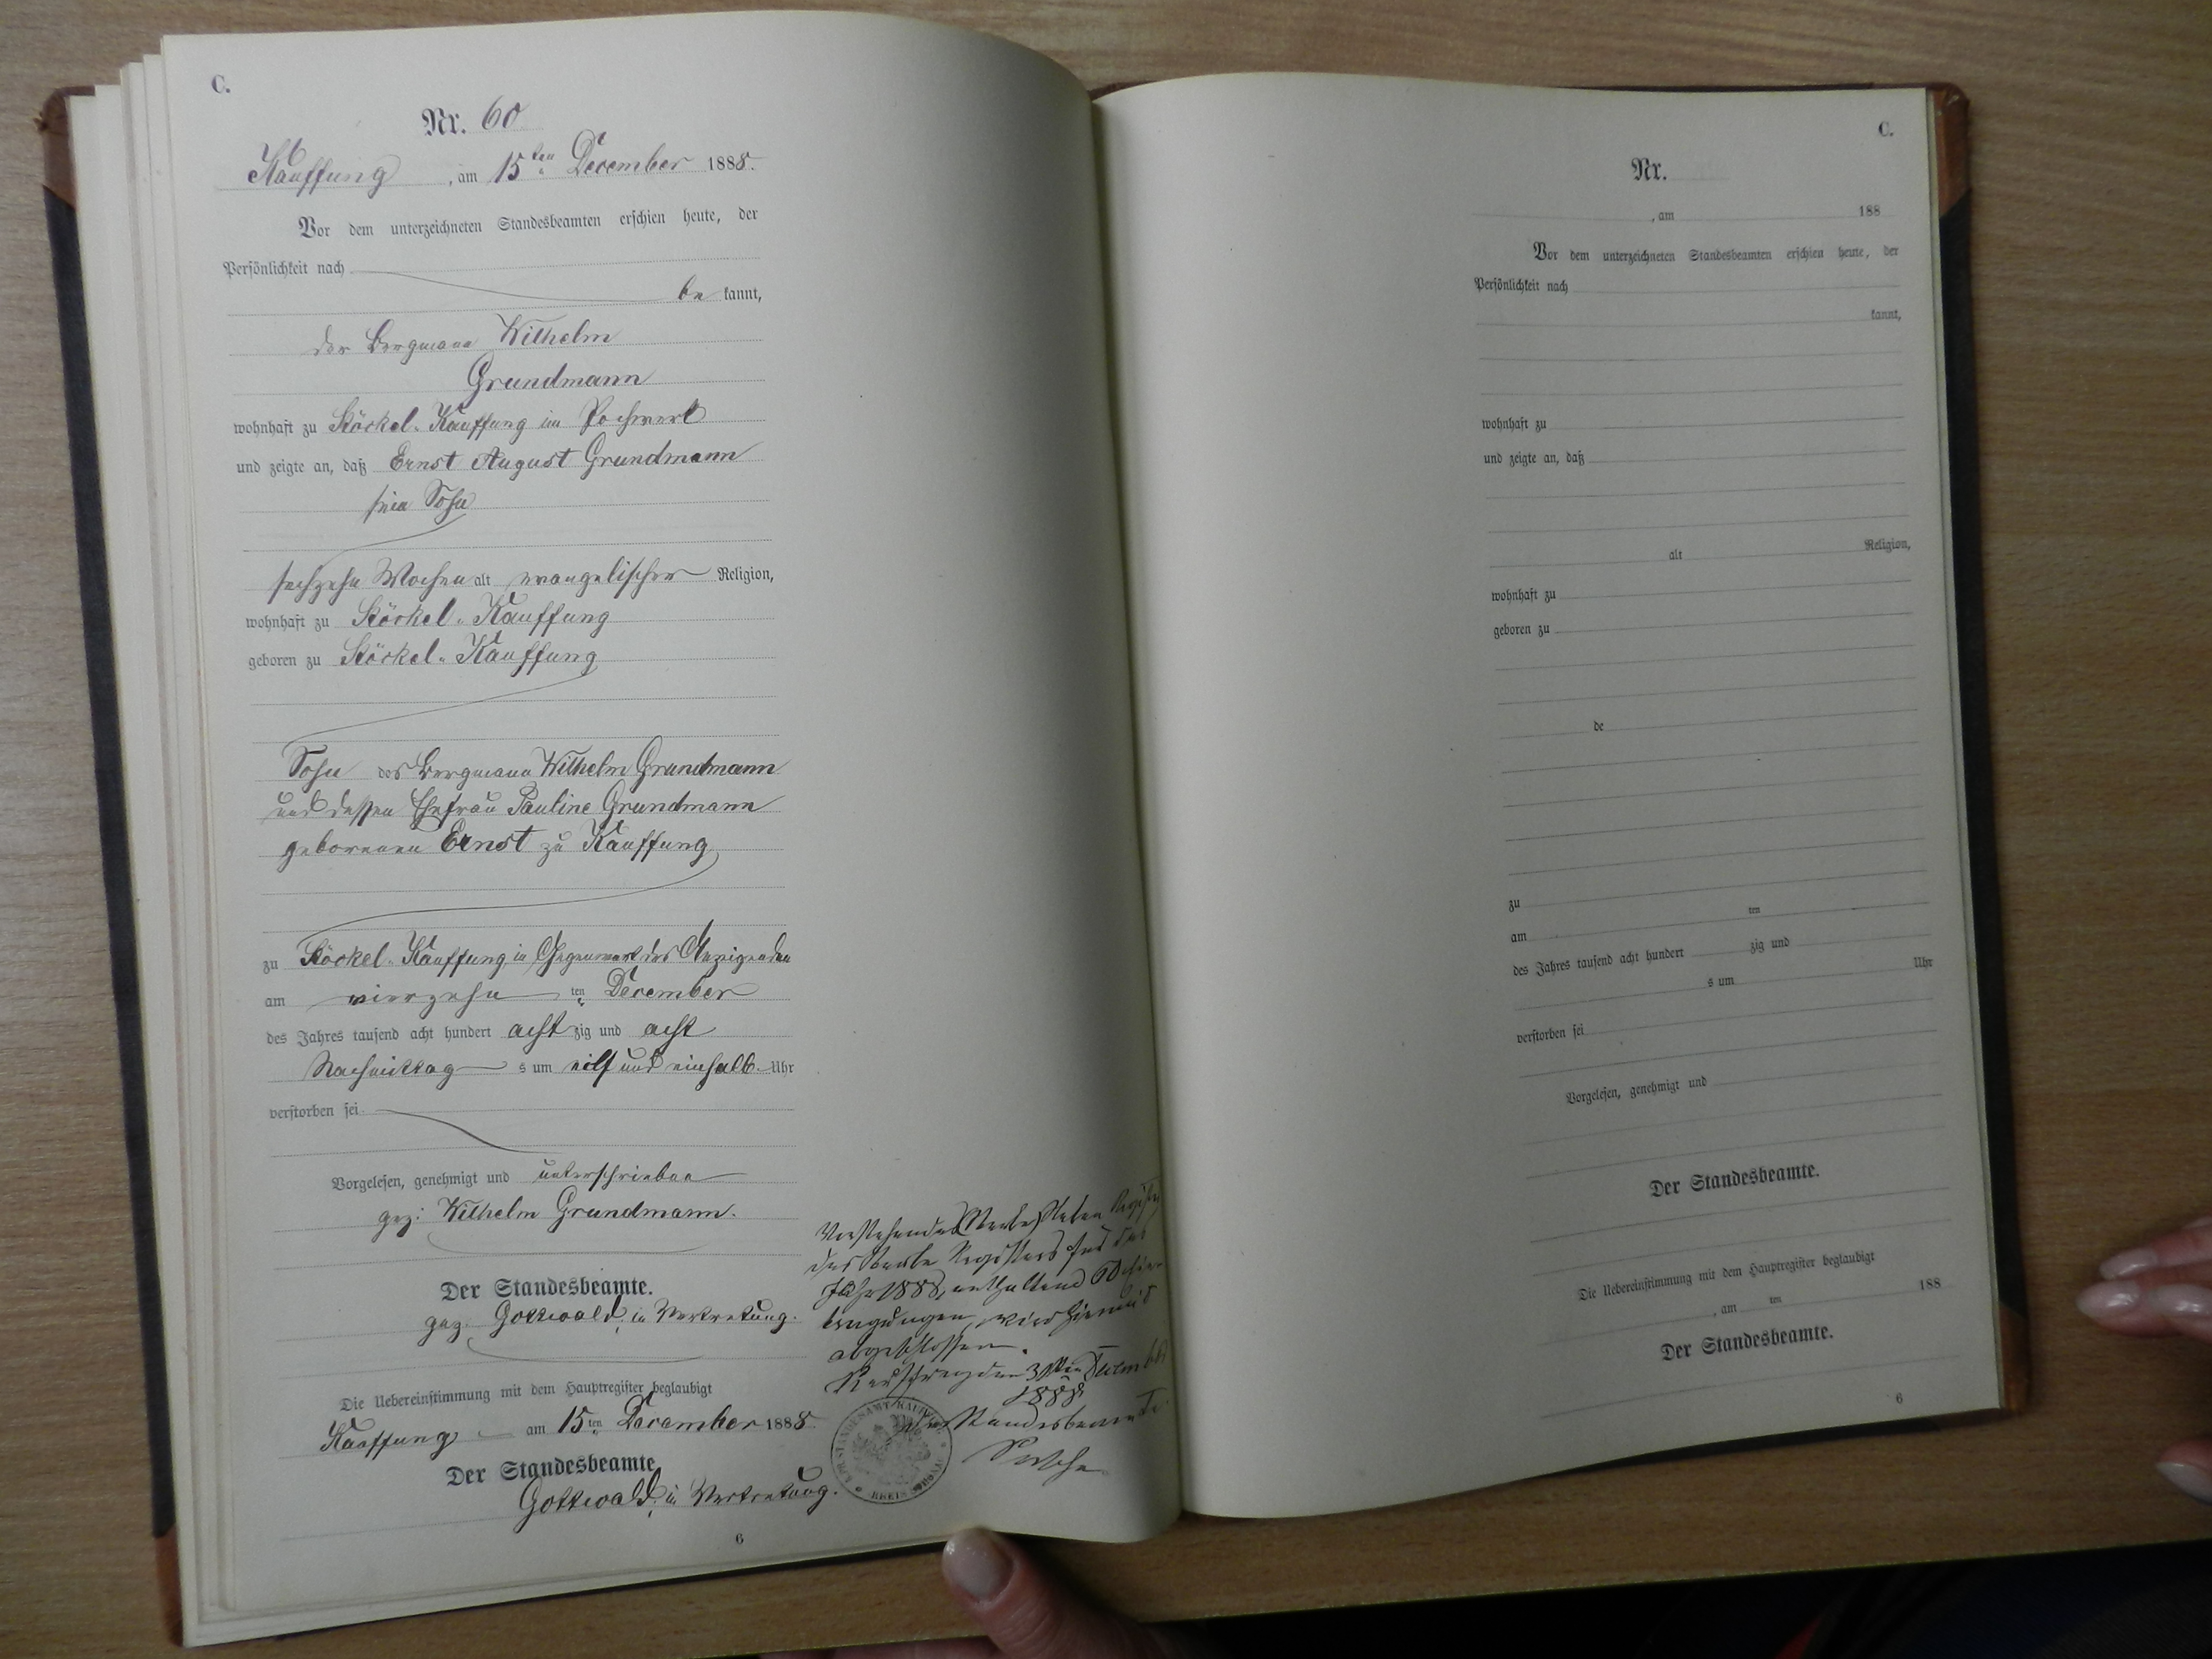 C.
Nr. 60
Kauffung, am 15ten December 1888.
Vor dem unterzeichneten Standesbeamten erschien heute, der
Persönlichkeit nach
be kannt,
der Bergmann Wilhelm
Grundmann
wohnhaft zu Stöckel-Kauffung im Pochwerk
und zeigte an, daß Ernst August Grundmann
sein Sohn
sechzehn Wochen alt evangelischer Religion,
wohnhaft zu Stöckel-Kauffung
geboren zu Stöckel-Kauffung
Sohn des Bergmann Wilhelm Grundmann
und dessen Ehefrau Pauline Grundmann
geborenen Ernst zu Kauffung
zu Stöckel-Kauffung in Gegenwart des Anzeigenden
am vierzehn ten December
des Jahres tausend acht hundert acht zig und acht
Nachmittag s um eilf und einhalb Uhr
verstorben sei
Vorgelesen, genehmigt und unterschrieben
gez: Wilhelm Grundmann.
Der Standesbeamte.
gez. Gottwald, in Vertretung.
Die Uebereinstimmung mit dem Hauptregister beglaubigt
Kauffung am 15ten December 1888
Der Standesbeamte
Gottwald, in Vertretung.
6
Vorstehendes Neben Register
des Sterbe Registers für das
Jahr 1888, enthaltend 60 Ein-
tragungen, wird hiermit
abgeschlossen.
Kauffung den 31ten December
1888
Der Standesbeamte
STANDESAMT KAUFFUNG
KREIS SCHÖNAU
C.
Nr.
, am 188
Vor dem unterzeichneten Standesbeamten erschien heute, der
Persönlichkeit nach
kannt,
wohnhaft zu
und zeigte an, daß
alt Religion,
wohnhaft zu
geboren zu
de
zu
am ten
des Jahres tausend acht hundert zig und
s um Uhr
verstorben sei
Vorgelesen, genehmigt und
Der Standesbeamte.
Die Uebereinstimmung mit dem Hauptregister beglaubigt
, am ten 188
Der Standesbeamte.
6